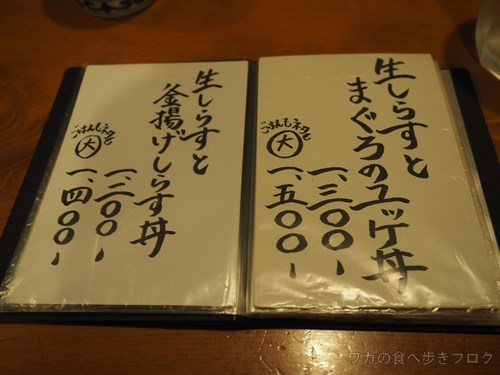 生しらすと
まぐろのユッケ丼
一、三〇〇-
ごはんもネタも
大
一、五〇〇-
生しらすと
釜揚げしらす丼
一、二〇〇-
ごはんもネタも
大
一、四〇〇-
ワカの食べ歩きブログ